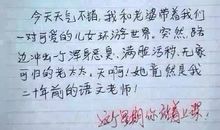 今天天气不错,我和老婆带着我们
一对可爱的儿女环游世界。突然,路
边冲出一浑身恶臭、满脸污秽、无家
可归的老太太,天啊!她竟然是我
二十年前的语文老师!
这个星期你站着上课!